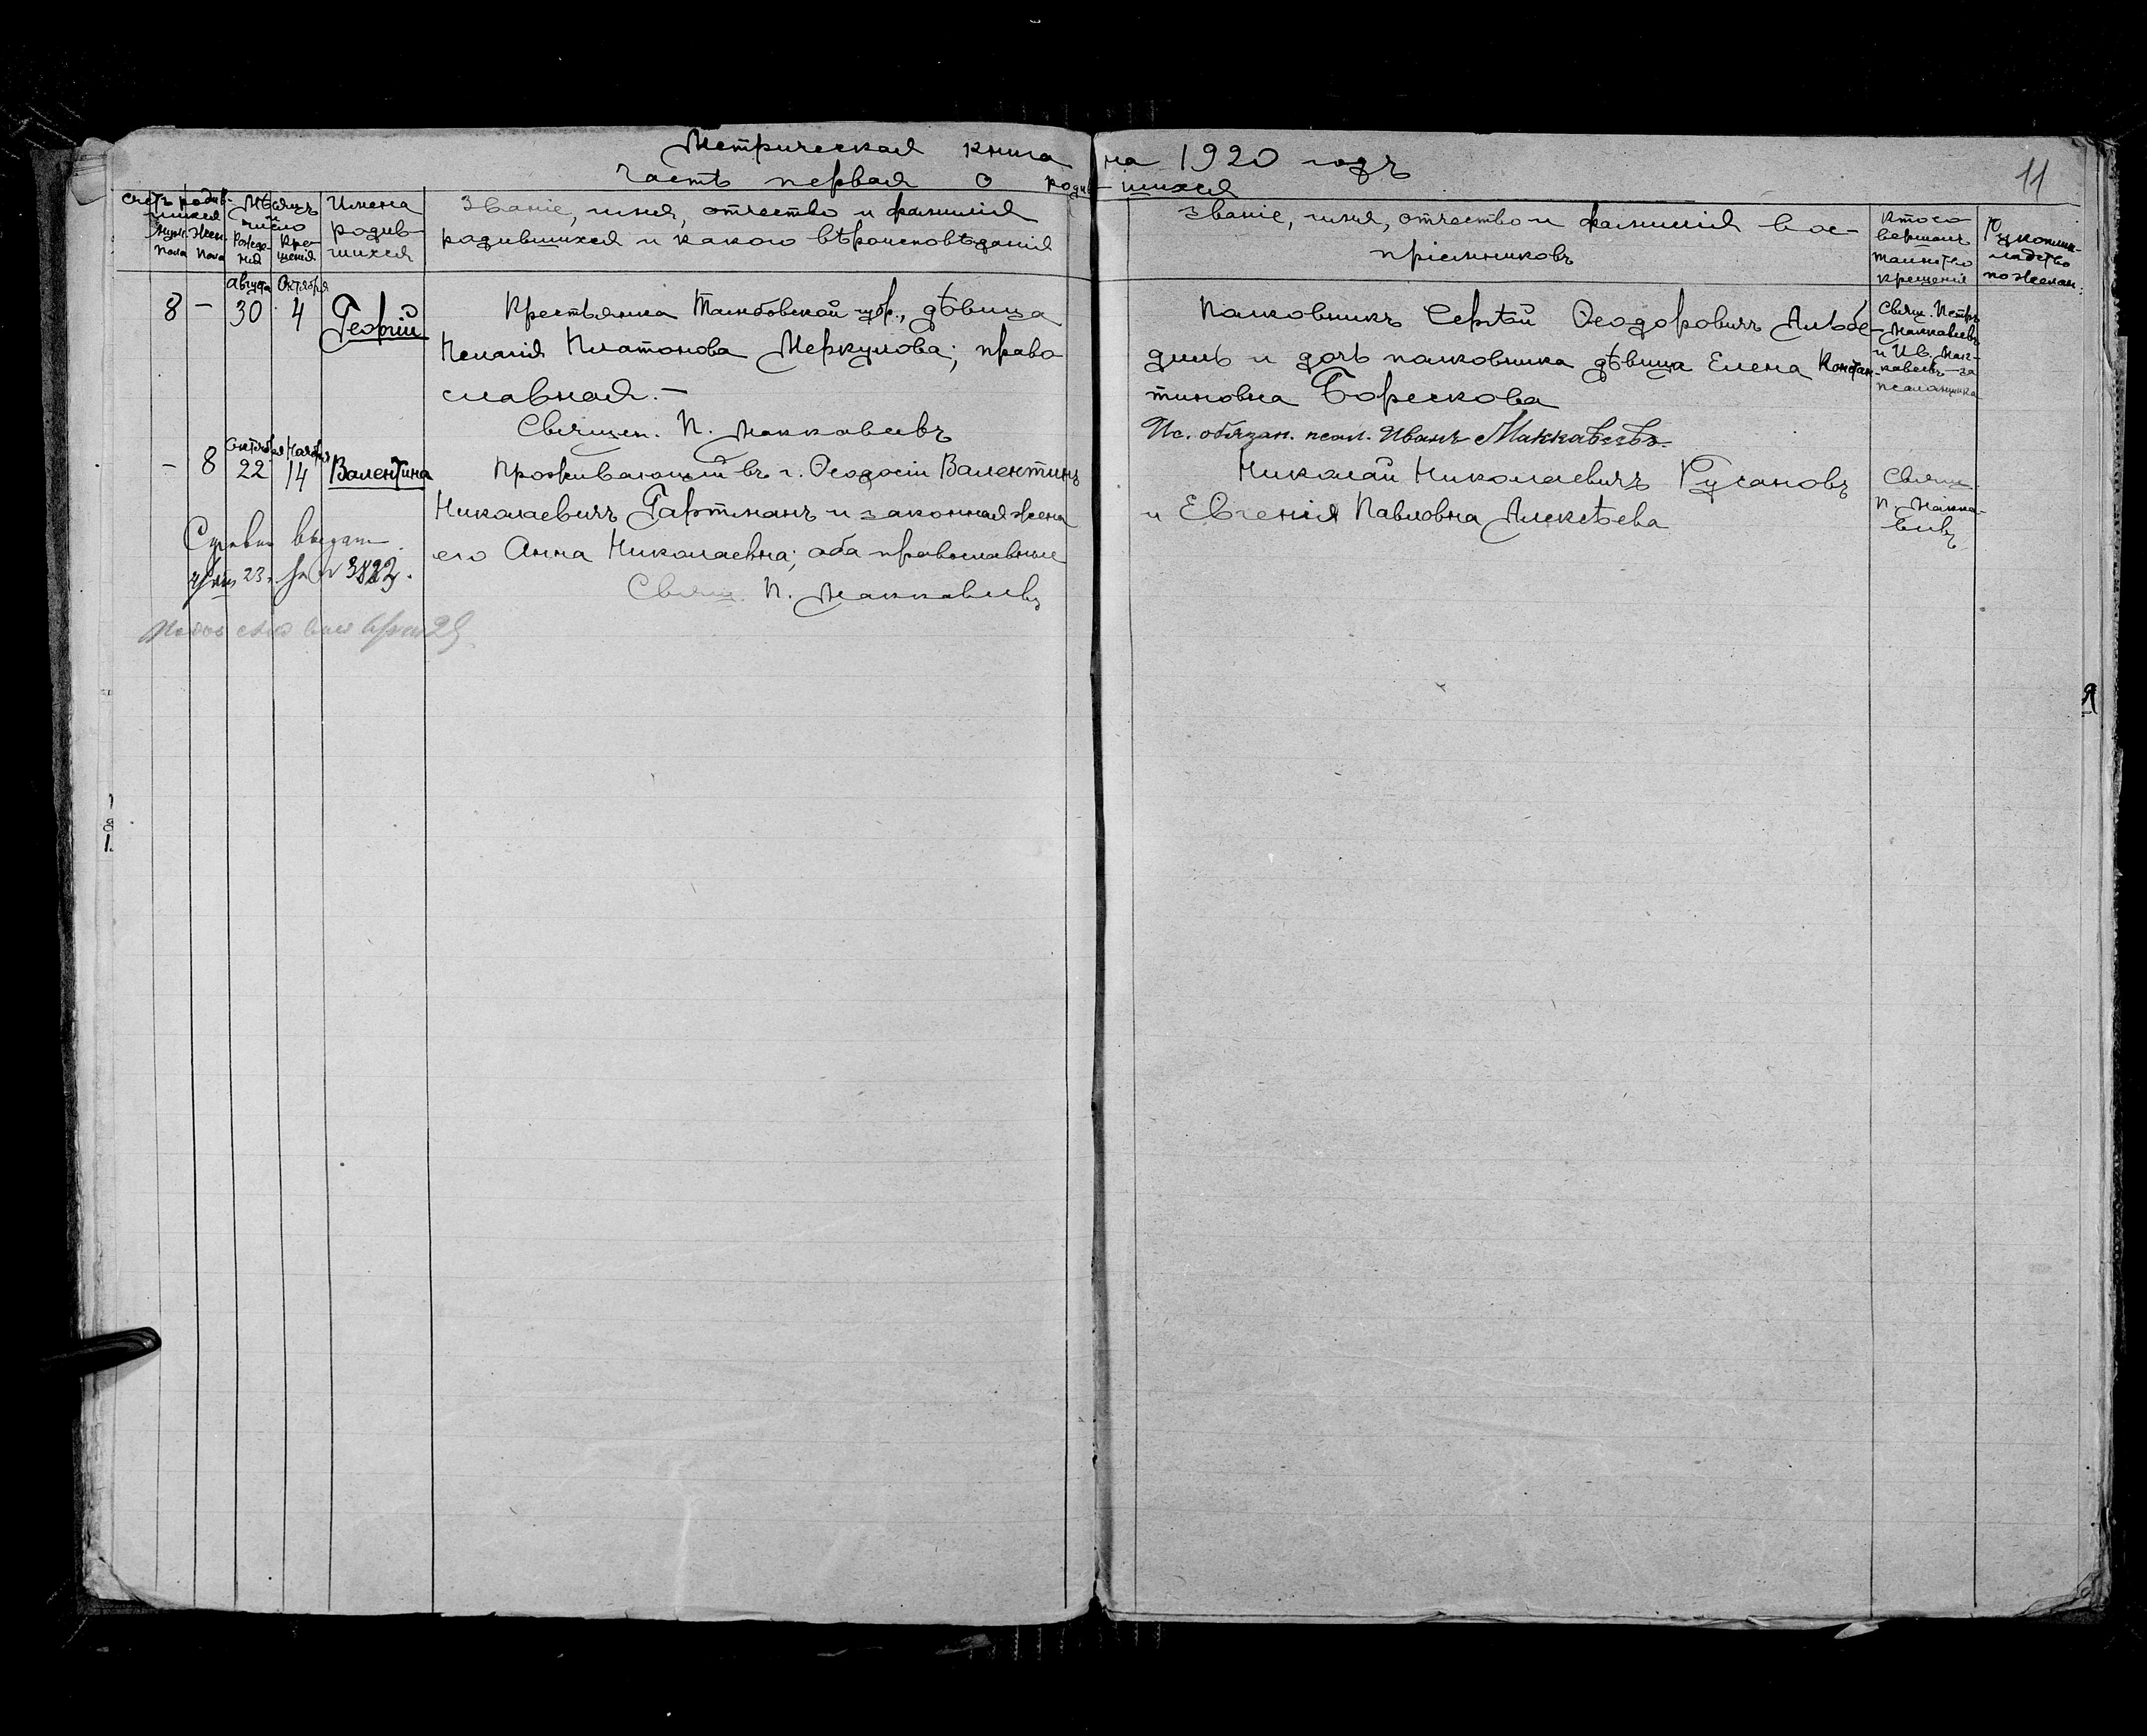 Метрическая книга на 1920 годъ
Часть первая о родив-шихся
11
Счетъ родив-
шихся
Муж. пола
Жен. пола
Мѣсяцъ и число
Рожде-
нія
Кре-
щенія
Имена
родив-
шихся
Званіе, имя, отчество и фамилія
родившихся и какого вѣроисповѣданія
Званіе, имя, отчество и фамилія вос-
пріемниковъ
Кто со-
вершалъ
таинство
крещенія
Рукопри-
кладство
по желан.
Августа Октября
8 - 30 4 Георгій
Крестьянка Тамбовской губ., дѣвица
Пелагія Платонова Меркулова; право
славная. -
Священ. П. Маккавеевъ
Полковникъ Сергѣй Ѳеодоровичъ
и дочь полковника дѣвица Елена Констан-
тиновна Борескова
Ис. обязан. псал. Иванъ Маккавѣевъ.
Свящ. Петръ
Маккавеевъ
и Ив. Мак-
кавеевъ за
псаломщика
Октября Ноября
- 8 22 14 Валентина
Проживающій въ г. Ѳеодосіи Валентинъ
Николаевичъ Гартманъ и законная жена
его Анна Николаевна; оба православные
Свящ. П. Маккавеевъ
Николай Николаевичъ Русановъ
и Евгенія Павловна Алексѣева
Свящ.
П. Макка-
веевъ
Справка выдана
23